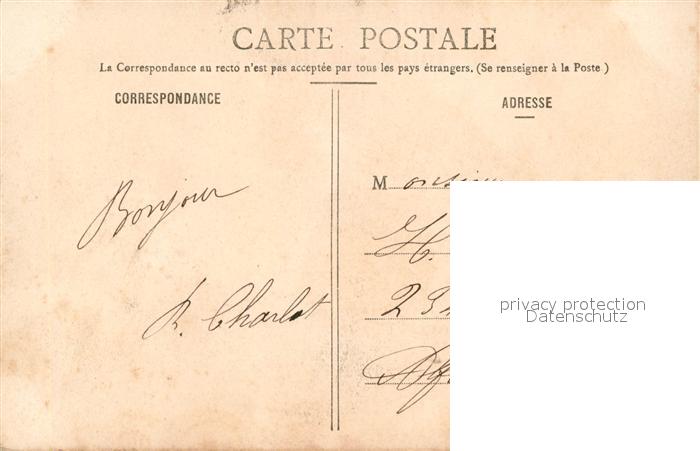 CARTE POSTALE
La Correspondance au recto n'est pas acceptée par tous les pays étrangers. (Se renseigner à la Poste )
CORRESPONDANCE
ADRESSE
Bonjour
R. Charlot
M
H.
23
privacy protection
Datenschutz